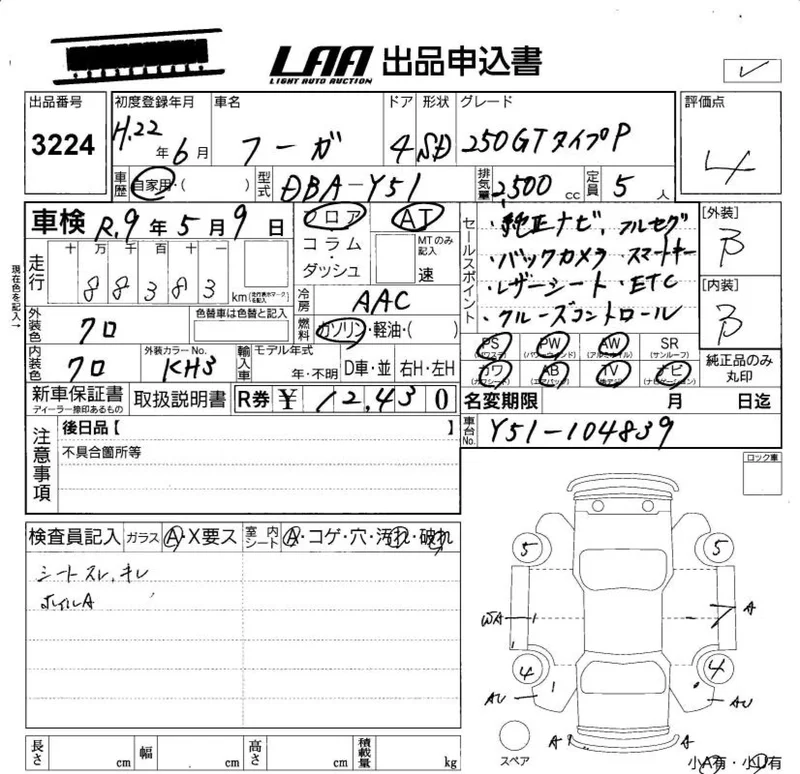 LAA 出品申込書
LIGHT AUTO AUCTION
出品番号 初度登録年月 車名 ドア 形状 グレード 評価点
3224 H.22年6月 フーガ 4 SD 250GTタイプP 4
車歴 自家用・( ) 型式 DBA-Y51 排気量 2,500cc 定員 5人
車検 R.9年5月9日
フロア AT
コラム・ダッシュ MTのみ記入 速
セールスポイント
・純正ナビ、フルセグ
・バックカメラ スマートキー
・レザーシート・ETC
・クルーズコントロール
[外装] B
[内装] B
現在色を記入→
走行 十 万 千 百 十 一
88383 km(走行表示マークを記入)
冷房 AAC
外装色 クロ 色替車は色替と記入
燃料 ガソリン・軽油・( )
PS(パワステ) PW(パワーウィンド) AW(アルミホイル) SR(サンルーフ)
カワ(カワシート) AB(エアバッグ) TV ナビ(ナビゲーション)
純正品のみ丸印
内装色 クロ 外装カラーNo. KH3 輸入車 モデル年式 年・不明 D車・並 右H・左H
新車保証書 ディーラー捺印あるもの 取扱説明書 R券 ¥12,430
名変期限 月 日迄
車台No. Y51-104839
注意事項
後日品【 】
不具合箇所等
ロック車
検査員記入 ガラス A・X要ス 室内シート A・コゲ・穴・汚れ・破れ
シートスレ、キレ
ホイルA
5 5
WA A
4 4
AU AU
A A
スペア
小A有・小U有
長さ cm 幅 cm 高さ cm 積載量 kg